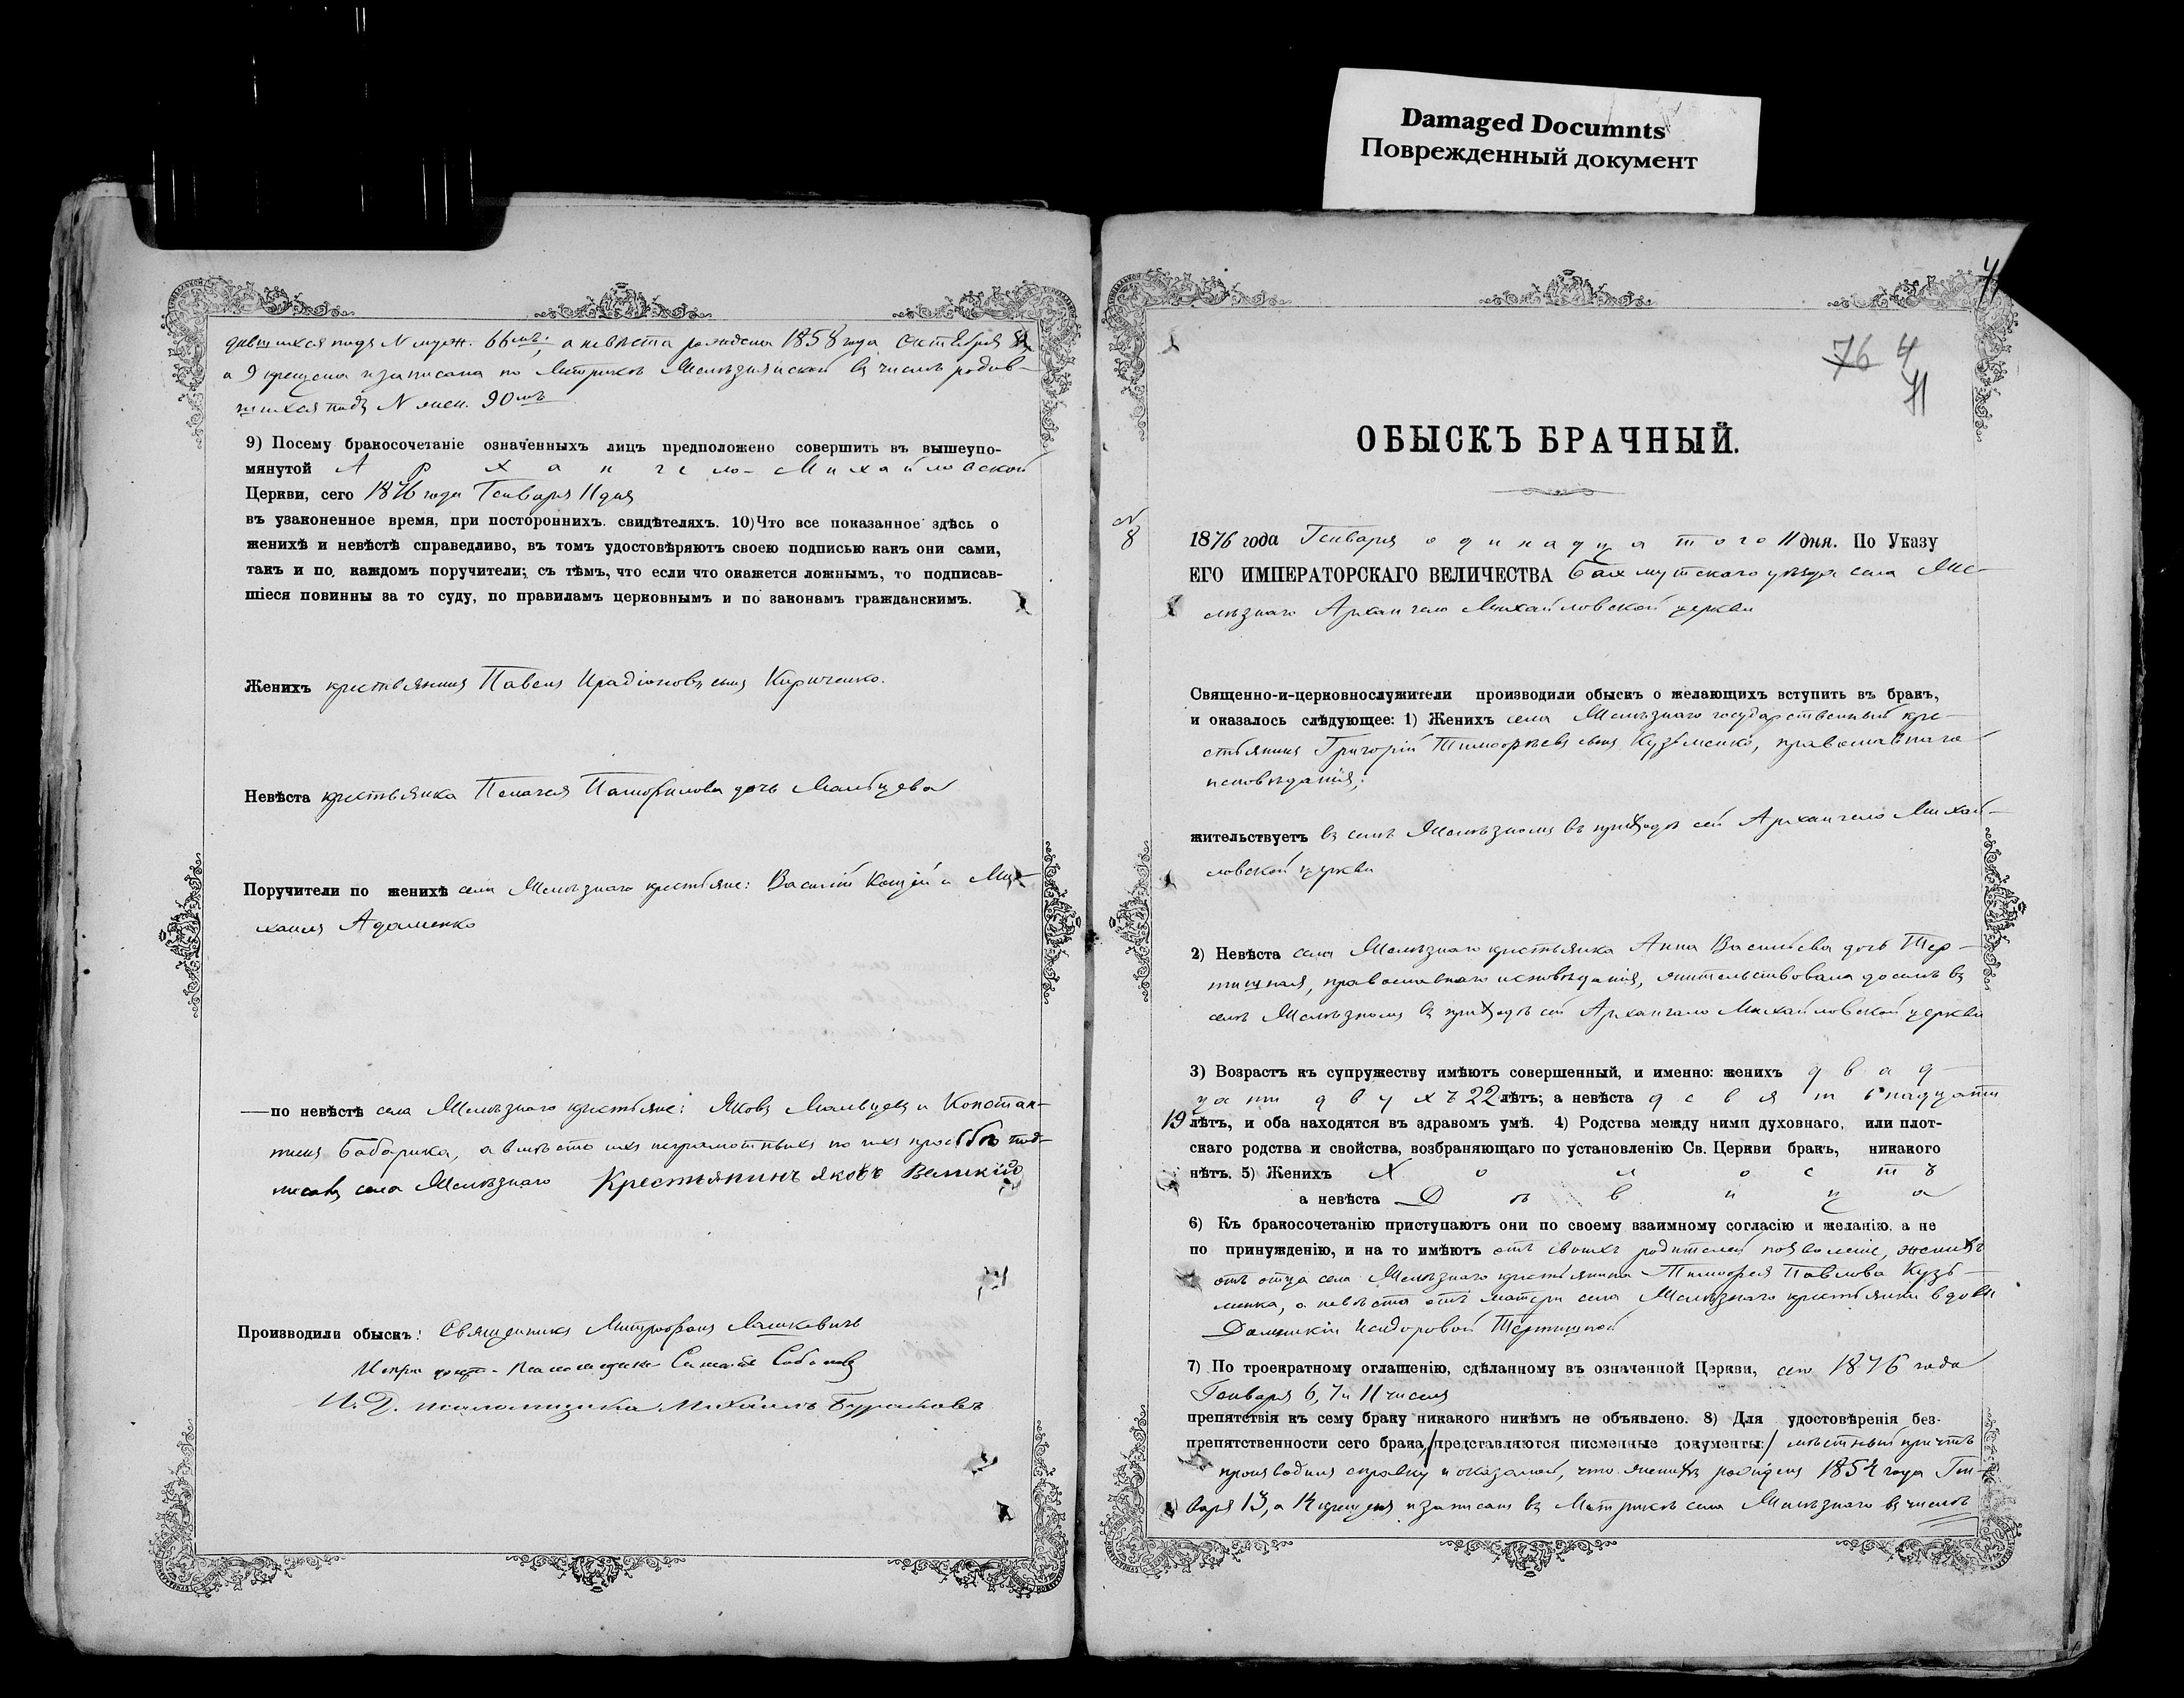 Damaged Documnts
Поврежденный документ
дившихся подъ N муж. 66мъ, а невѣста рождена 1858 года Октября 8
а 9 крещена и записана по Метрикѣ Желѣзнянской въ числѣ родив-
шихся подъ N жен. 90мъ
9) Посему бракосочетаніе означенныхъ лицъ предположено совершить въ вышеупо-
мянутой Архангело-Михайловской
Церкви, сего 1876 года Генваря 11 дня
въ узаконенное время, при постороннихъ свидѣтеляхъ. 10) Что все показанное здѣсь о
женихѣ и невѣстѣ справедливо, въ томъ удостовѣряютъ своею подписью какъ они сами,
такъ и по каждомъ поручители; съ тѣмъ, что если что окажется ложнымъ, то подписав-
шіеся повинны за то суду, по правиламъ церковнымъ и по законамъ гражданскимъ.
Женихъ крестьянинъ Павелъ Ирадіоновъ сынъ Кириченко.
Невѣста крестьянка Пелагея Памфилова дочь Мальцева
Поручители по женихѣ села Желѣзнаго крестьяне: Василій Кощій и Ми-
хаилъ Адаменко
—по невѣстѣ села Желѣзнаго крестьяне: Яковъ Мальцевъ и Констан-
тинъ Бабарика, а вмѣсто ихъ неграмотныхъ по ихъ прозьбѣ под-
писавъ села Желѣзнаго Крестьянинъ яковъ Великій
Производили обыскъ: Священникъ Митрофанъ
Псаломщикъ
И. Д. псаломщика Михаилъ Бурсаковъ
4
76 4
11
ОБЫСКЪ БРАЧНЫЙ.
N
8
1876 года Генваря одинадцатого 11 дня. По Указу
ЕГО ИМПЕРАТОРСКАГО ВЕЛИЧЕСТВА Бахмутскаго уѣзда села Же-
лѣзнаго Архангело Михайловской церкви
Священно-и-церковнослужители производили обыскъ о желающихъ вступить въ бракъ,
и оказалось слѣдующее: 1) Женихъ села Желѣзнаго государственный кре-
стьянинъ Григорій Тимофѣевъ сынъ Кузьменко, православнаго
исповѣданія;
жительствуетъ въ селѣ Желѣзномъ въ приходѣ сей Архангело Михай-
ловской церкви
2) Невѣста села Желѣзнаго крестьянка Анна Васильева дочь Тер-
тишная, православнаго исповѣданія, жительствовала доселѣ въ
селѣ Желѣзномъ въ приходѣ сей Архангело Михайловской церкви
3) Возрастъ къ супружеству имѣютъ совершенный, и именно: женихъ двад-
цати двухъ 22 лѣтъ; а невѣста девятьнадцати
19 лѣтъ, и оба находятся въ здравомъ умѣ. 4) Родства между ними духовнаго, или плот-
скаго родства и свойства, возбраняющаго по установленію Св. Церкви бракъ, никакого
нѣтъ. 5) Женихъ Холостъ
а невѣста Дѣвица
6) Къ бракосочетанію приступаютъ они по своему взаимному согласію и желанію, а не
по принужденію, и на то имѣютъ отъ своихъ родителей позволеніе, женихъ
отъ отца села Желѣзнаго крестьянина Тимофея Павлова Кузь-
менка, а невѣста отъ матери села Желѣзнаго крестьянки вдовы
Домникіи Исидоровой Тертишной
7) По троекратному оглашенію, сдѣланному въ означенной Церкви, сего 1876 года
Генваря 6, 7 и 11 чиселъ
препятствія къ сему браку никакого никѣмъ не объявлено. 8) Для удостовѣренія без-
препятственности сего брака, /представляются писменные документы:/ мѣстный причтъ
производилъ справку и оказалось, что женихъ рожденъ 1854 года Ген-
варя 13, а 14 крещенъ и записанъ въ Метрикѣ села Желѣзнаго въ числѣ